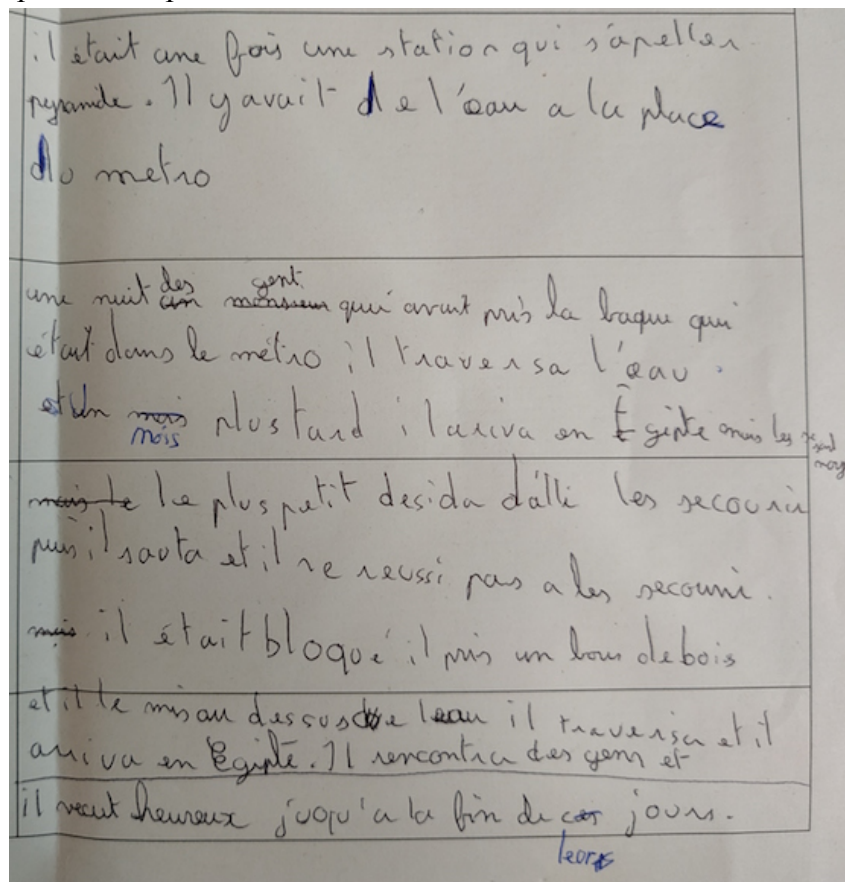 il était une fois une station qui s'apeller
pyramide. Il y avait de l'eau a la place
du metro
une nuit des gent qui avait pris la baque qui
était dans le métro il traversa l'eau.
et Un mois plus tard il ariva en Égipte mais les
le plus petit desida d'alli les secourir
puis il sauta et il ne reussi pas a les secourir.
il était bloqué il pris un bous de bois
et il le mis au dessus de l'eau il traversa et il
ariva en Egipte. Il rencontra des gens et
il vecut heureux juqu'a la fin de leors jours.